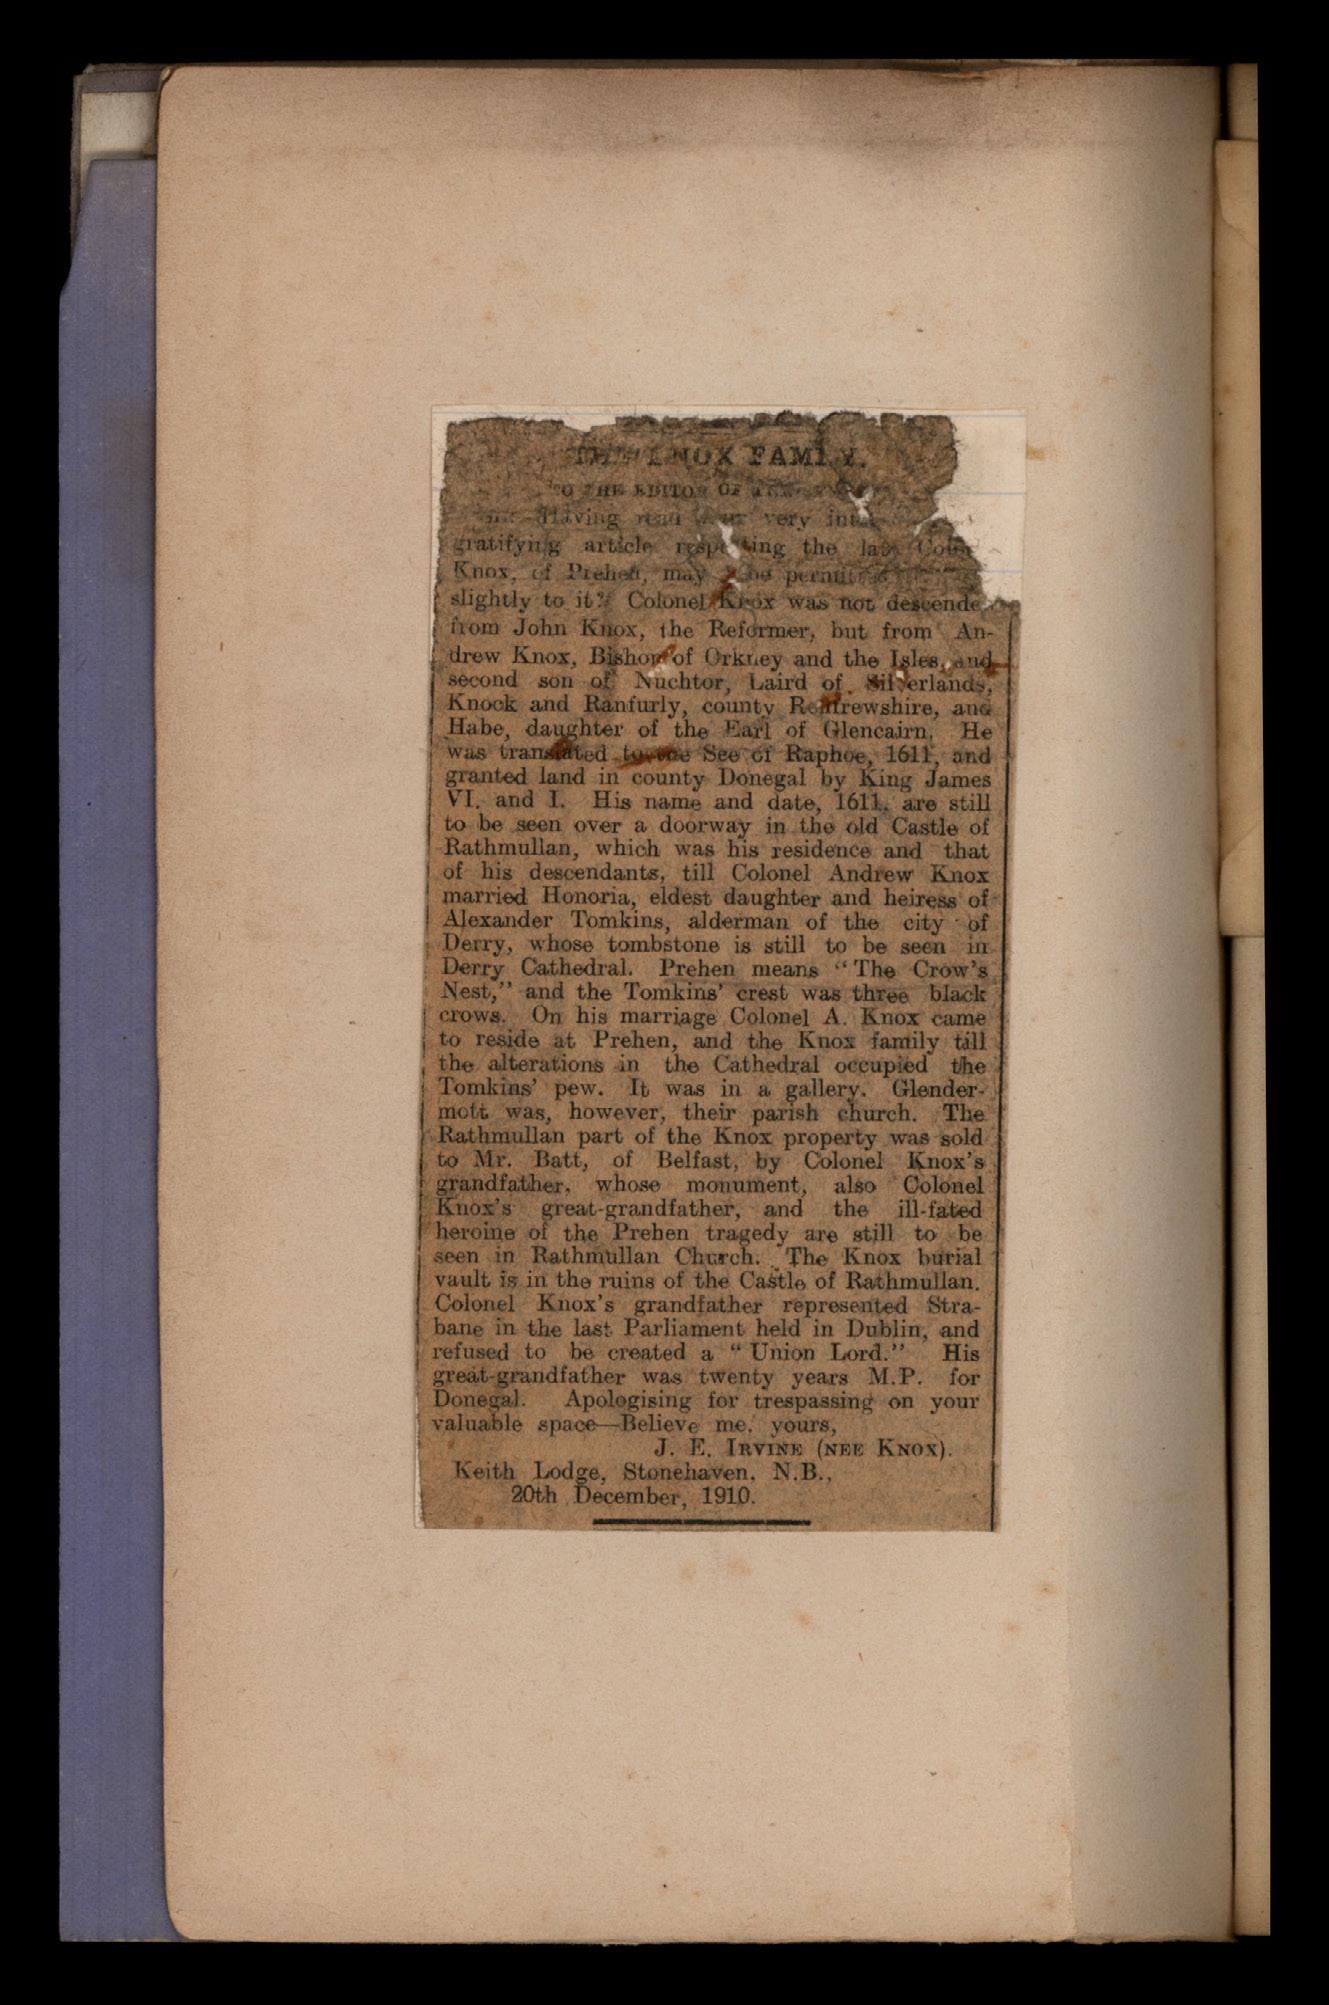 THE KNOX FAMILY.
TO THE EDITOR OF THE
Sir—Having read your very
gratifying article respecting the late
Knox, of Prehen, may I be
slightly to it? Colonel Knox was not descended
from John Knox, the Reformer, but from An-
drew Knox, Bishop of Orkney and the Isles, and
second son of Nuchtor, Laird of Silverlands,
Knock and Ranfurly, county Renfrewshire, and
Habe, daughter of the Earl of Glencairn. He
was translated to the See of Raphoe, 1611, and
granted land in county Donegal by King James
VI. and I. His name and date, 1611, are still
to be seen over a doorway in the old Castle of
Rathmullan, which was his residence and that
of his descendants, till Colonel Andrew Knox
married Honoria, eldest daughter and heiress of
Alexander Tomkins, alderman of the city of
Derry, whose tombstone is still to be seen in
Derry Cathedral. Prehen means "The Crow's
Nest," and the Tomkins' crest was three black
crows. On his marriage Colonel A. Knox came
to reside at Prehen, and the Knox family till
the alterations in the Cathedral occupied the
Tomkins' pew. It was in a gallery. Glender-
mott was, however, their parish church. The
Rathmullan part of the Knox property was sold
to Mr. Batt, of Belfast, by Colonel Knox's
grandfather, whose monument, also Colonel
Knox's great-grandfather, and the ill-fated
heroine of the Prehen tragedy are still to be
seen in Rathmullan Church. The Knox burial
vault is in the ruins of the Castle of Rathmullan.
Colonel Knox's grandfather represented Stra-
bane in the last Parliament held in Dublin, and
refused to be created a "Union Lord." His
great-grandfather was twenty years M.P. for
Donegal. Apologising for trespassing on your
valuable space—Believe me, yours,
J. E. IRVINE (NEE KNOX).
Keith Lodge, Stonehaven, N.B.,
20th December, 1910.